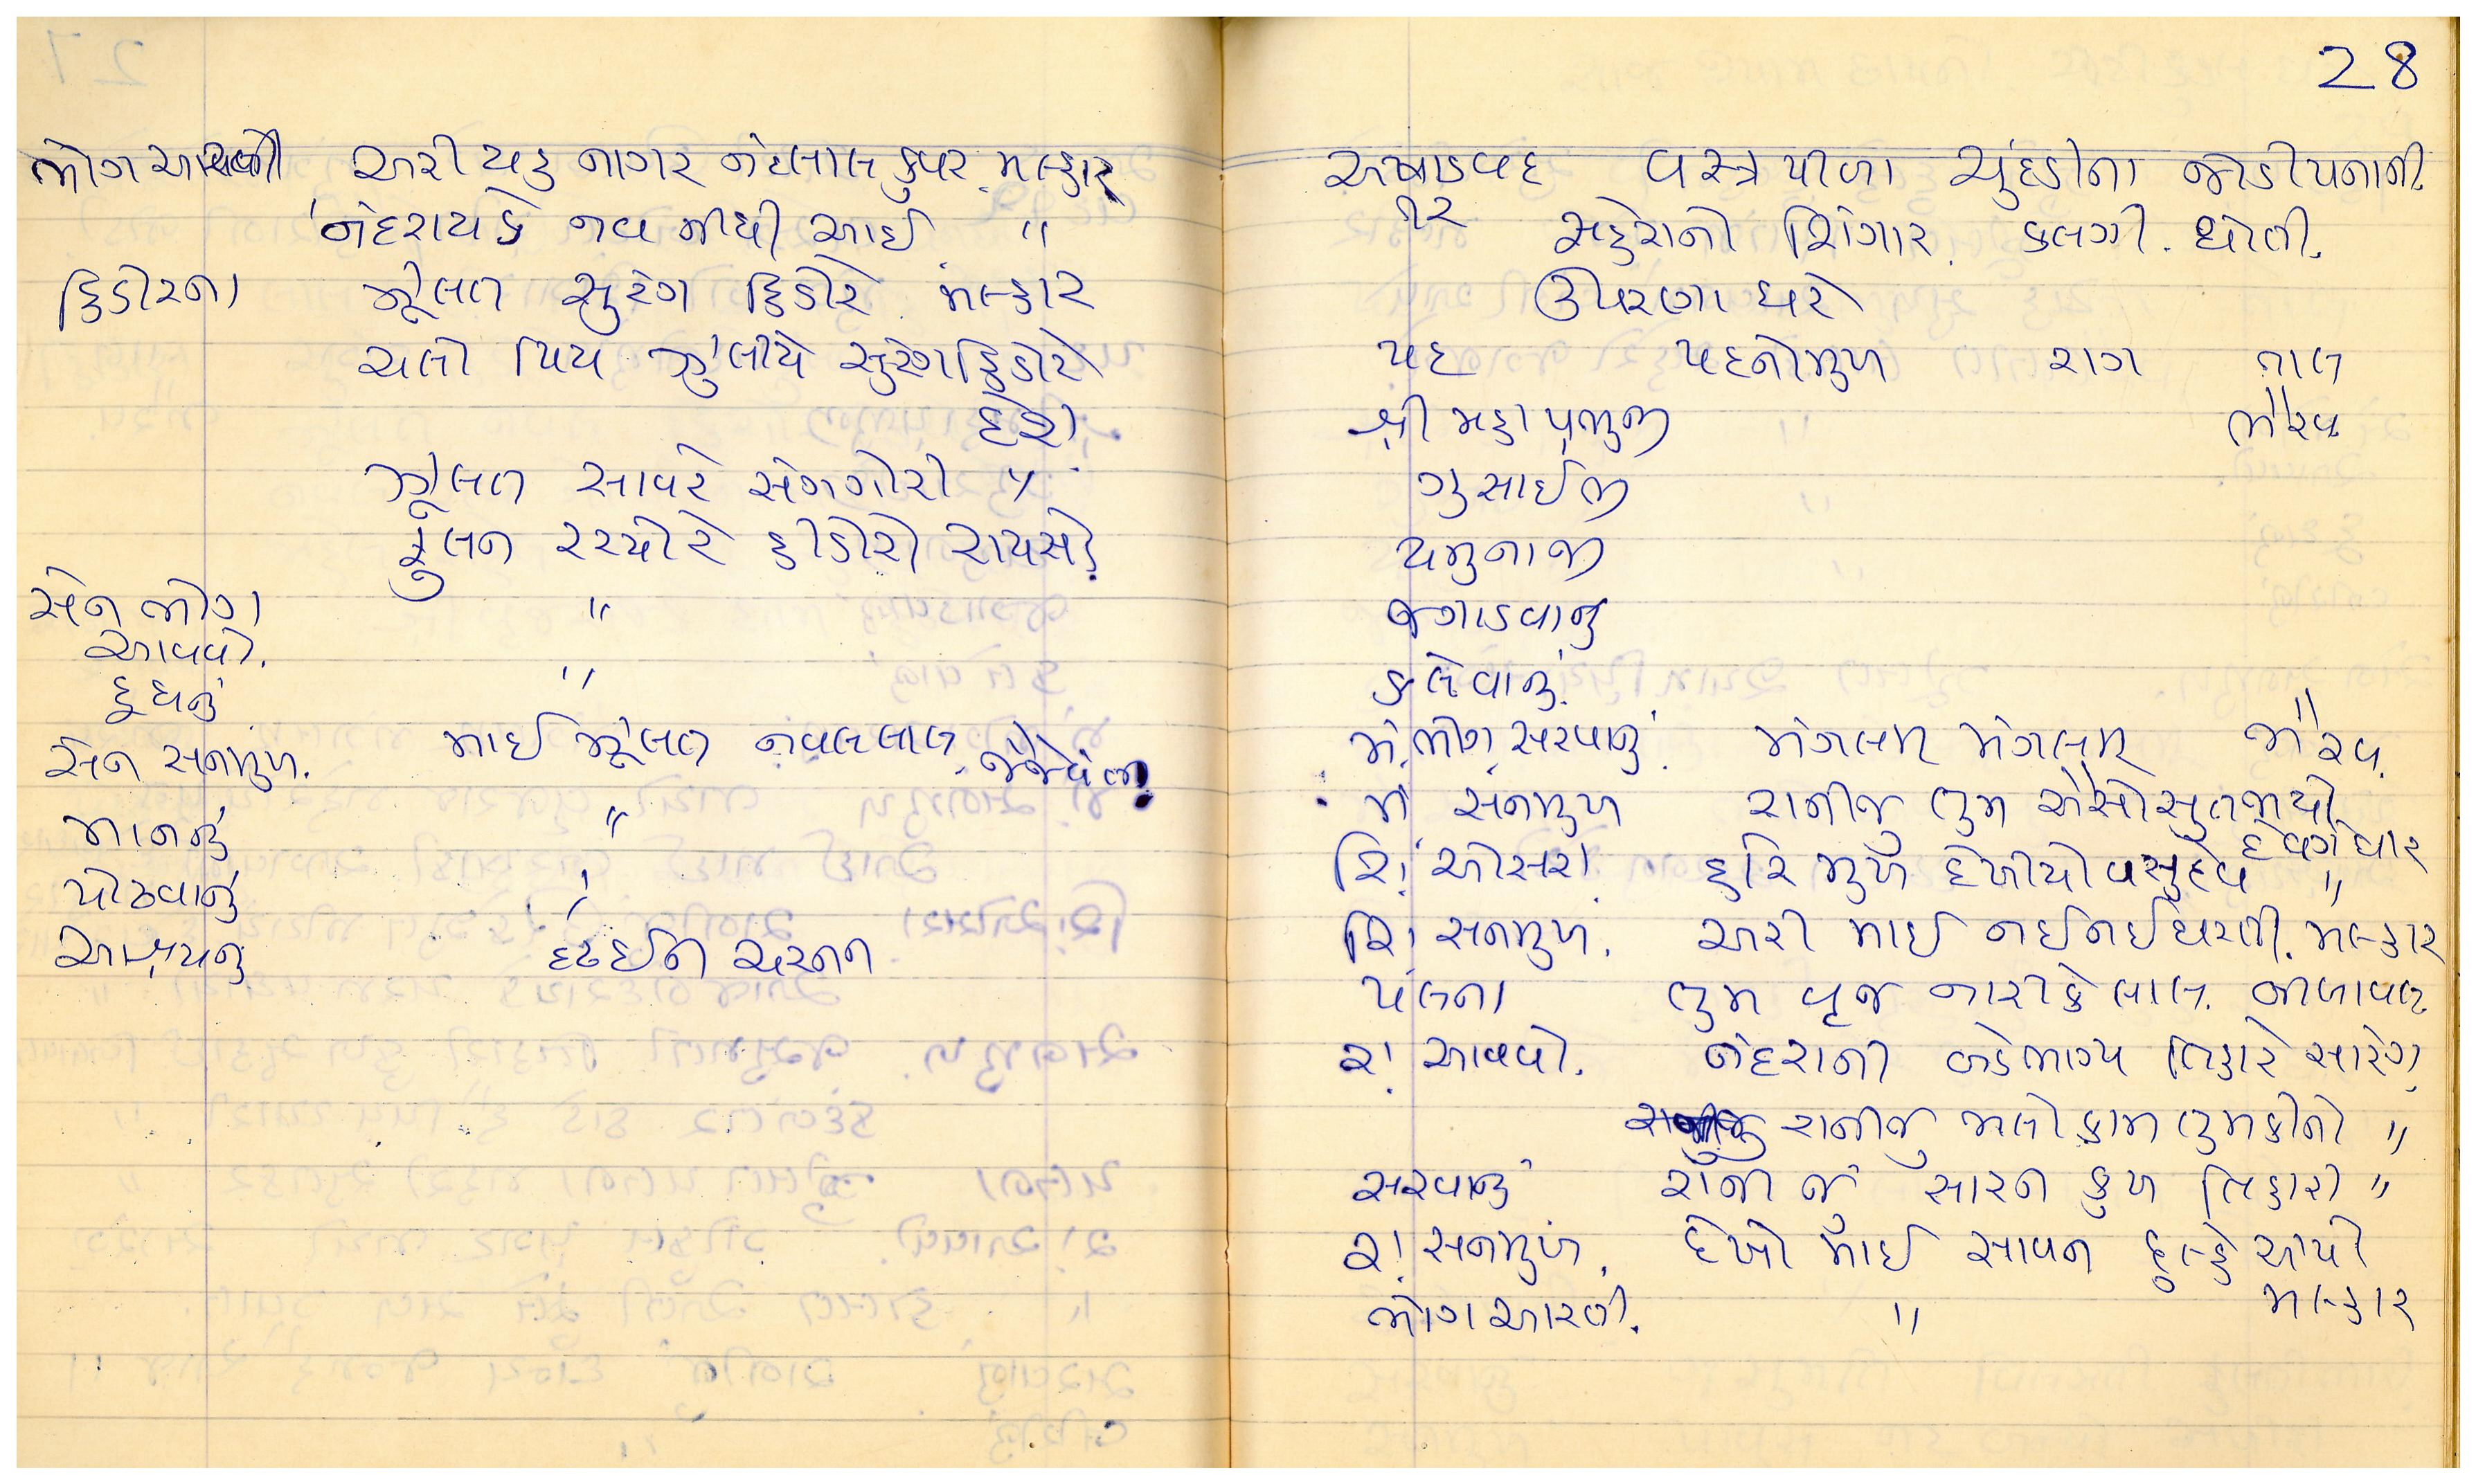 ભોગ આવ્યો અરી યહ નાગર નંદલાલ કુવર મલ્હાર
નંદરાયકે નવ નીધી આઈ "
હિડોરના ઝૂલત સુરંગ હિડોરે મલ્હાર
ચલો પિય ઝુલીયે સુરંગ હિડોરે
દેશ
ઝૂલત સાવરે સંગ ગોરી "
ઝુલન રચ્યો રે હીડોરો રાયસો
સેન ભોગ "
આવવો.
દૂધનું "
સેન સનમુખ. માઈ ઝૂલત નવલલાલ જેજેવંતી
માનનું "
પોઢવાનું "
આશ્રયનું દઢ ઈન ચરનન
28
અષાડવદ વસ્ત્ર પીળા ચુંદડીના જોડી પનાની.
૧૨ સહેરાનો શિંગાર. કલગી. ધોતી.
ઊપરણા ધરે
પદ પદનો મુખ રાગ તાલ
શ્રી મહાપ્રભુજી ભૈરવ
ગુસાઈજી
યમુનાજી
જગાડવાનું
કલેવાનું.
મં. ભોગ સરવાનું. મંગલમ મંગલમ ભૈરવ.
મં સનમુખ રાનીજુ તુમ ઐસો સુત જાયો
દેવગંધાર
શિં ઓસરા હરિ મુખ દેખીયો વસુદેવ "
શિં સનમુખ. અરી માઈ નઈ નઈ ધરતી. મલ્હાર
પલના તુમ વૃજ નારી કે લાલ. બીલાવલ
રા. આવવો. નંદરાની બડે ભાગ્ય તિહારે સારંગ
રાનીજુ ભલો કામ તુમ કીનો "
સરવાનું રાની જુ સારન કુખ તિહારી "
રા. સનમુખ. દેખો માઈ સાવન દુલ્હે આયો
મલ્હાર
ભોગ આરતી. "